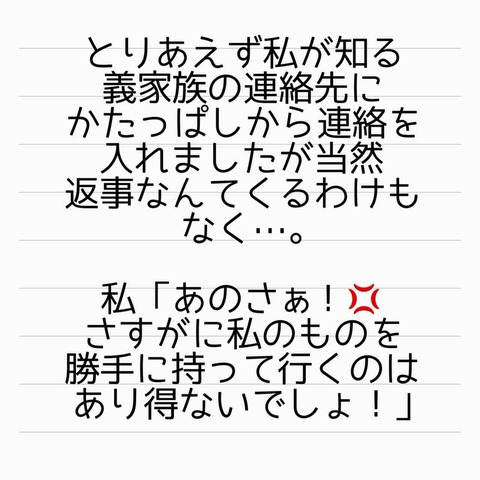 とりあえず私が知る
義家族の連絡先に
かたっぱしから連絡を
入れましたが当然
返事なんてくるわけも
なく…。
私「あのさぁ！💢
さすがに私のものを
勝手に持って行くのは
あり得ないでしょ！」